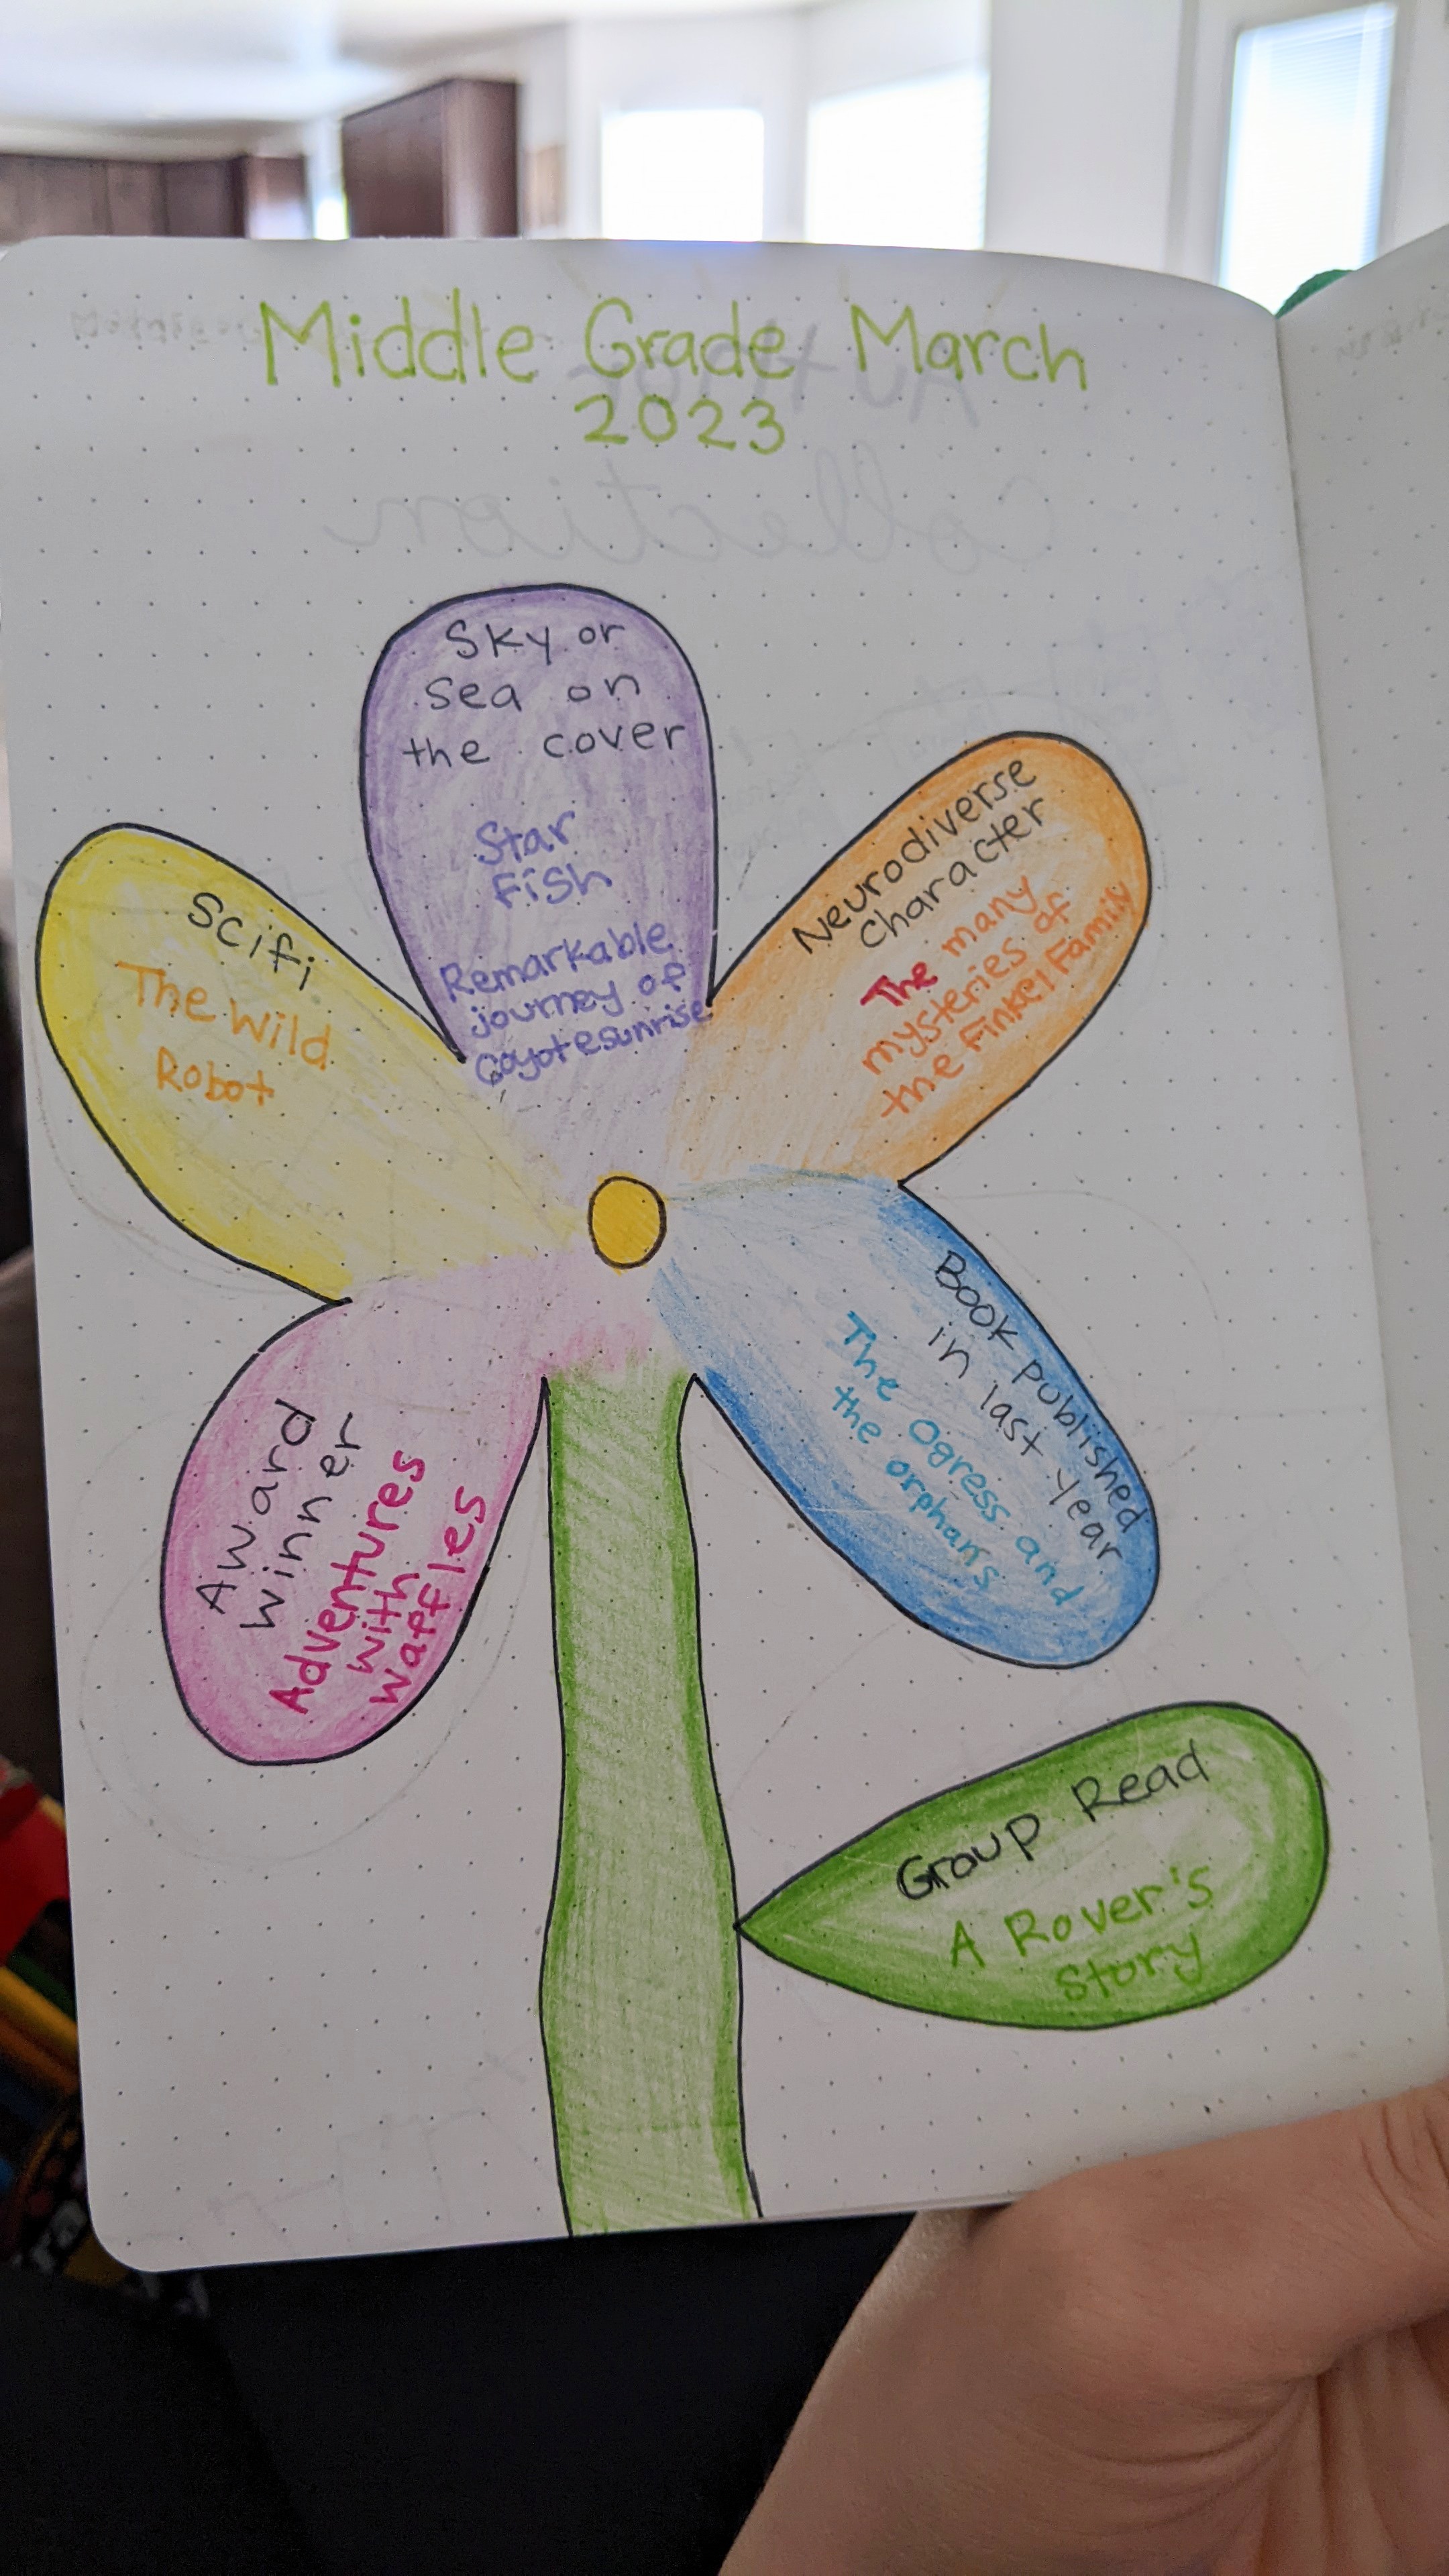 Middle Grade March
2023
Sky or
sea on
the cover
Star
Fish
Remarkable
journey of
Coyote sunrise
Neurodiverse
Character
The many
mysteries of
the Finkel Family
Scifi
The Wild
Robot
Book published
in last year
The Ogress and
the orphans
Award
Winner
Adventures
with
Waffles
Group Read
A Rover's
Story
AUTHOR
Collection